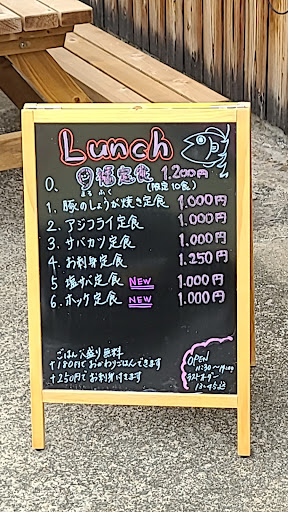 Lunch
0. 福定食 1.200円
まる ふく
(限定10食)
1. 豚のしょうが焼き定食 1.000円
2. アジフライ定食 1.000円
3. サバカツ定食 1.000円
4. お刺身定食 1.250円
5 塩サバ定食 NEW 1.000円
6. ホッケ定食 NEW 1.000円
ごはん大盛り無料
+180円でおかわりごはんできます
+250円でお刺身付けます
OPEN
11:30~14:00
ラストオーダー